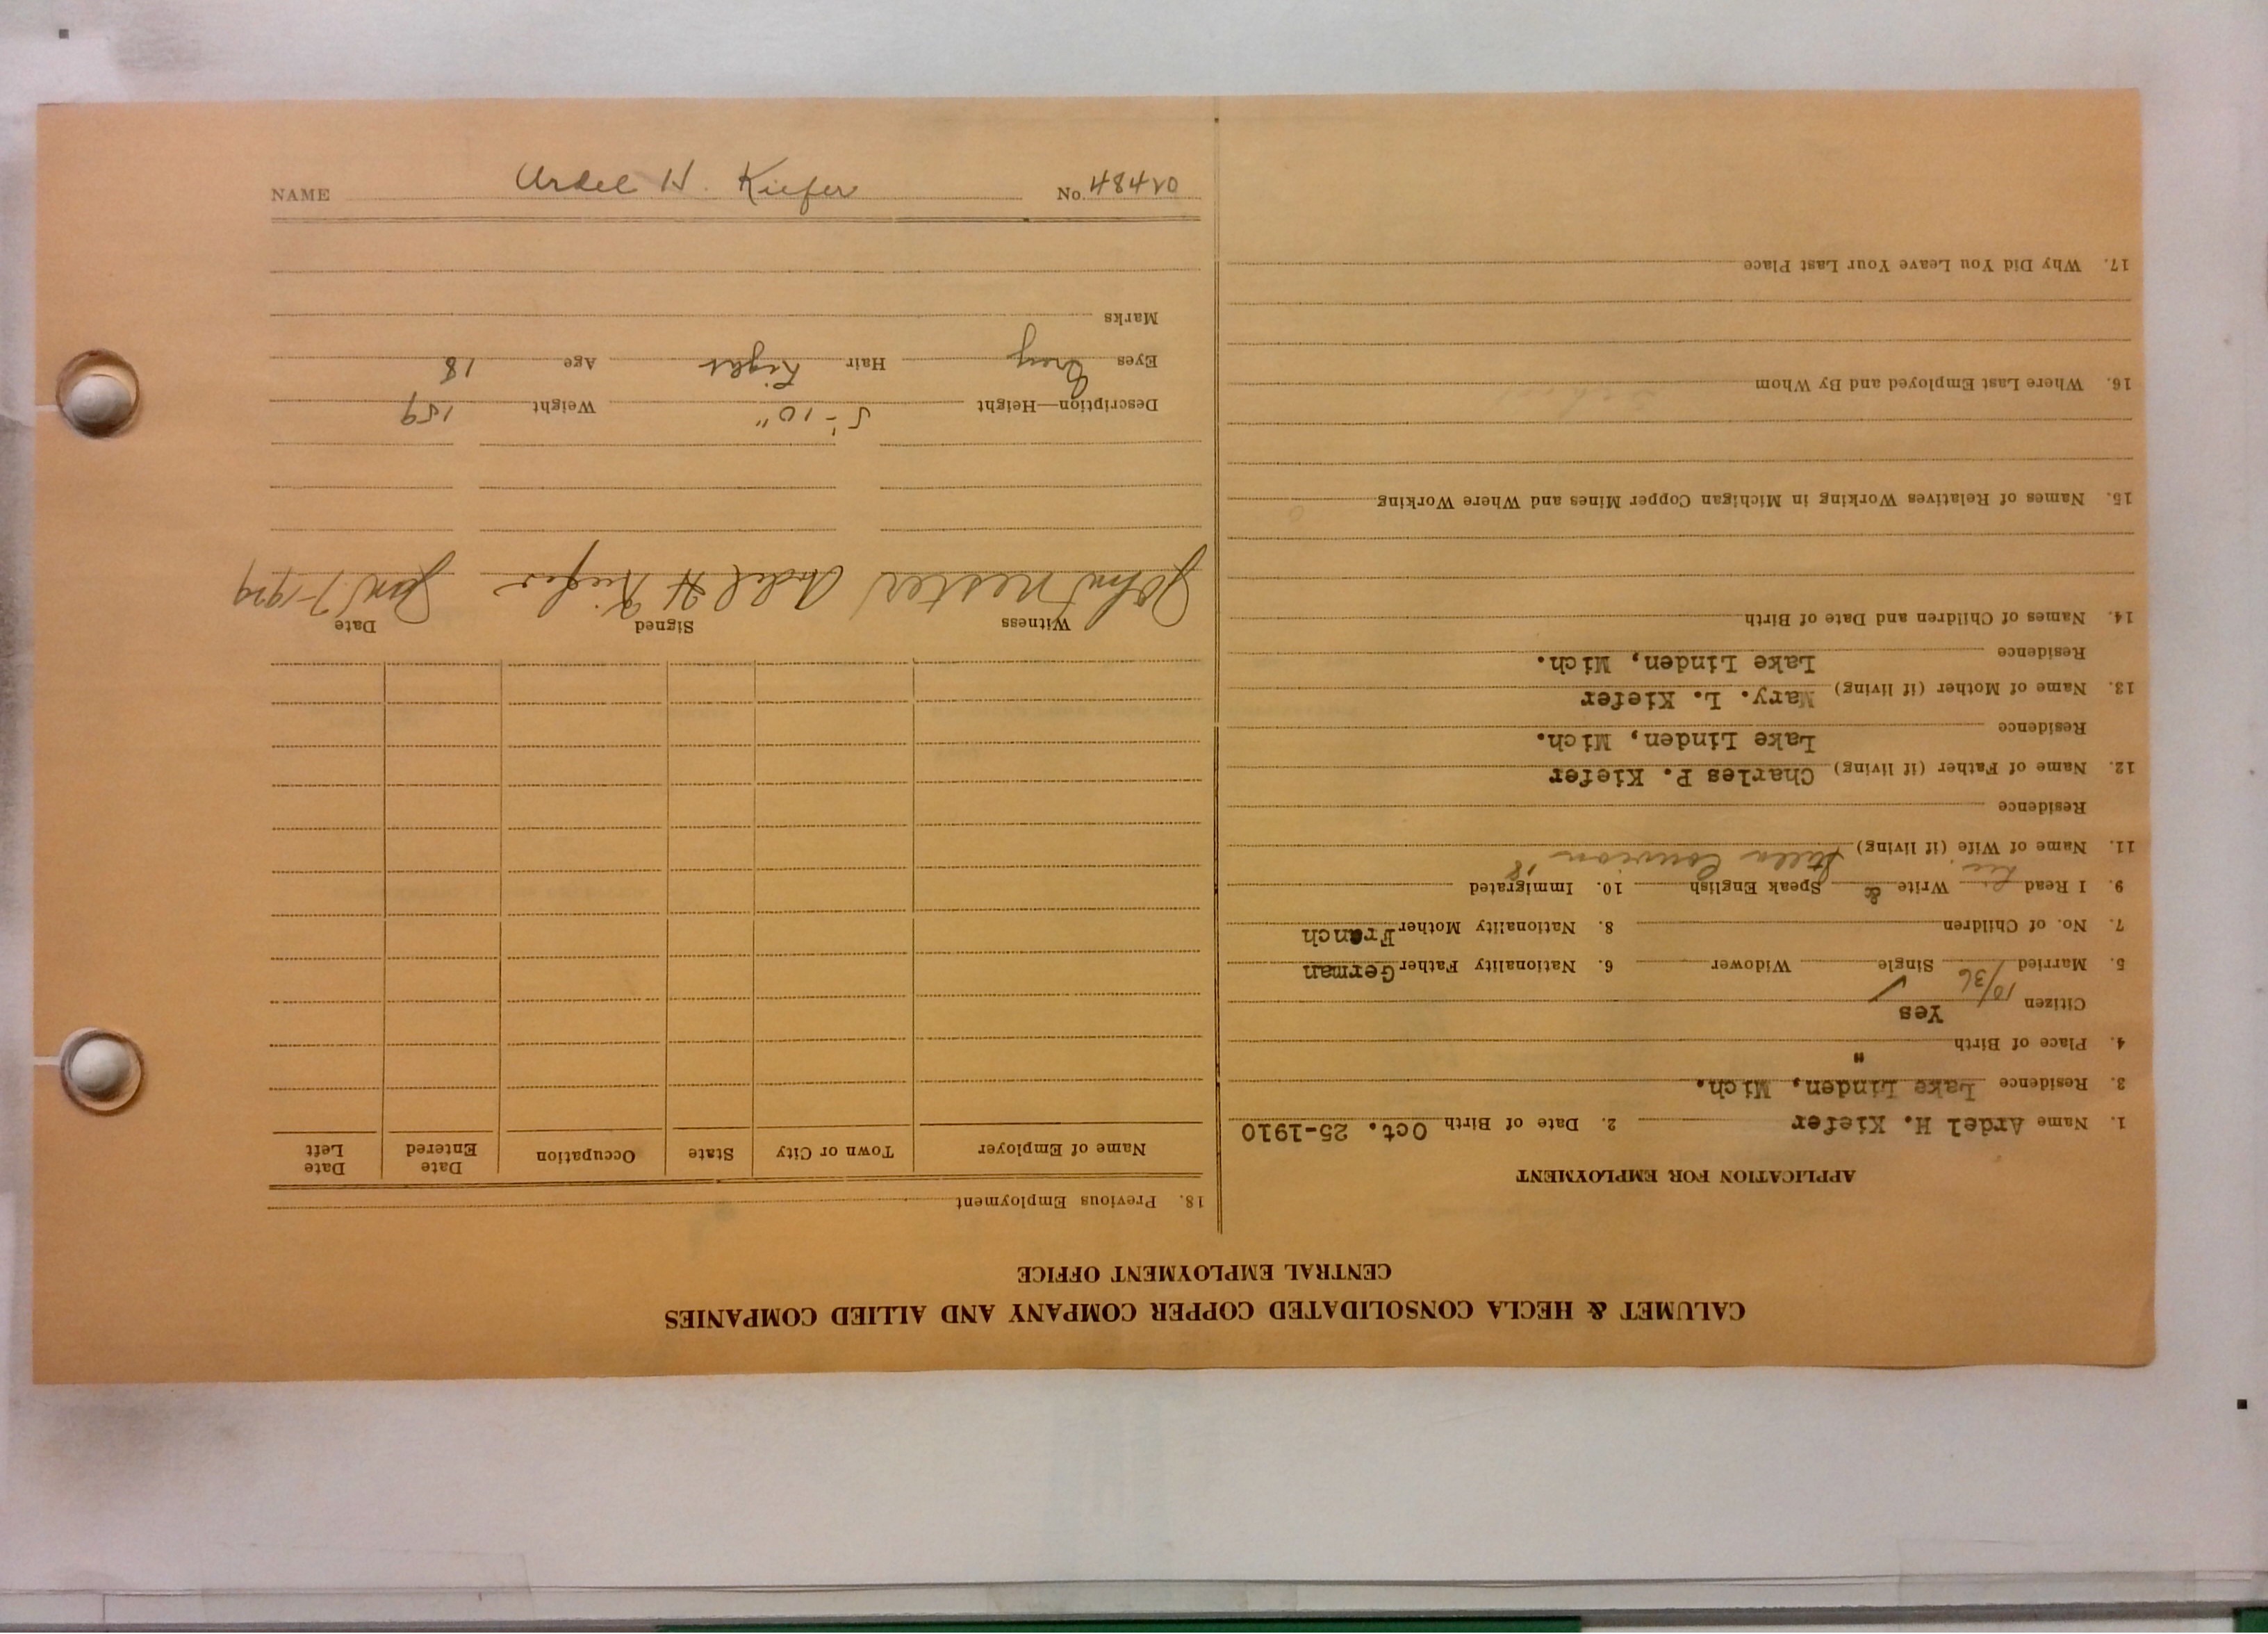 CALUMET & HECLA CONSOLIDATED COPPER COMPANY AND ALLIED COMPANIES
CENTRAL EMPLOYMENT OFFICE
APPLICATION FOR EMPLOYMENT
1. Name Ardel H. Kiefer 2. Date of Birth Oct. 25-1910
3. Residence Lake Linden, Mich.
4. Place of Birth "
Citizen Yes
10/36 ✓
5. Married Single Widower 6. Nationality Father German
7. No. of Children 8. Nationality Mother French
9. I Read Write & Speak English 10. Immigrated
11. Name of Wife (if living) Stella
Residence
12. Name of Father (if living) Charles P. Kiefer
Residence Lake Linden, Mich.
13. Name of Mother (if living) Mary. L. Kiefer
Residence Lake Linden, Mich.
14. Names of Children and Date of Birth
15. Names of Relatives Working in Michigan Copper Mines and Where Working
16. Where Last Employed and By Whom
17. Why Did You Leave Your Last Place
18. Previous Employment
Name of Employer Town or City State Occupation Date Entered Date Left
Witness Signed Date
John Mester Ardel H Kiefer Jan 7-1929
Description—Height 5-10" Weight 159
Eyes Gray Hair Light Age 18
Marks
NAME Ardel H. Kiefer No. 48420